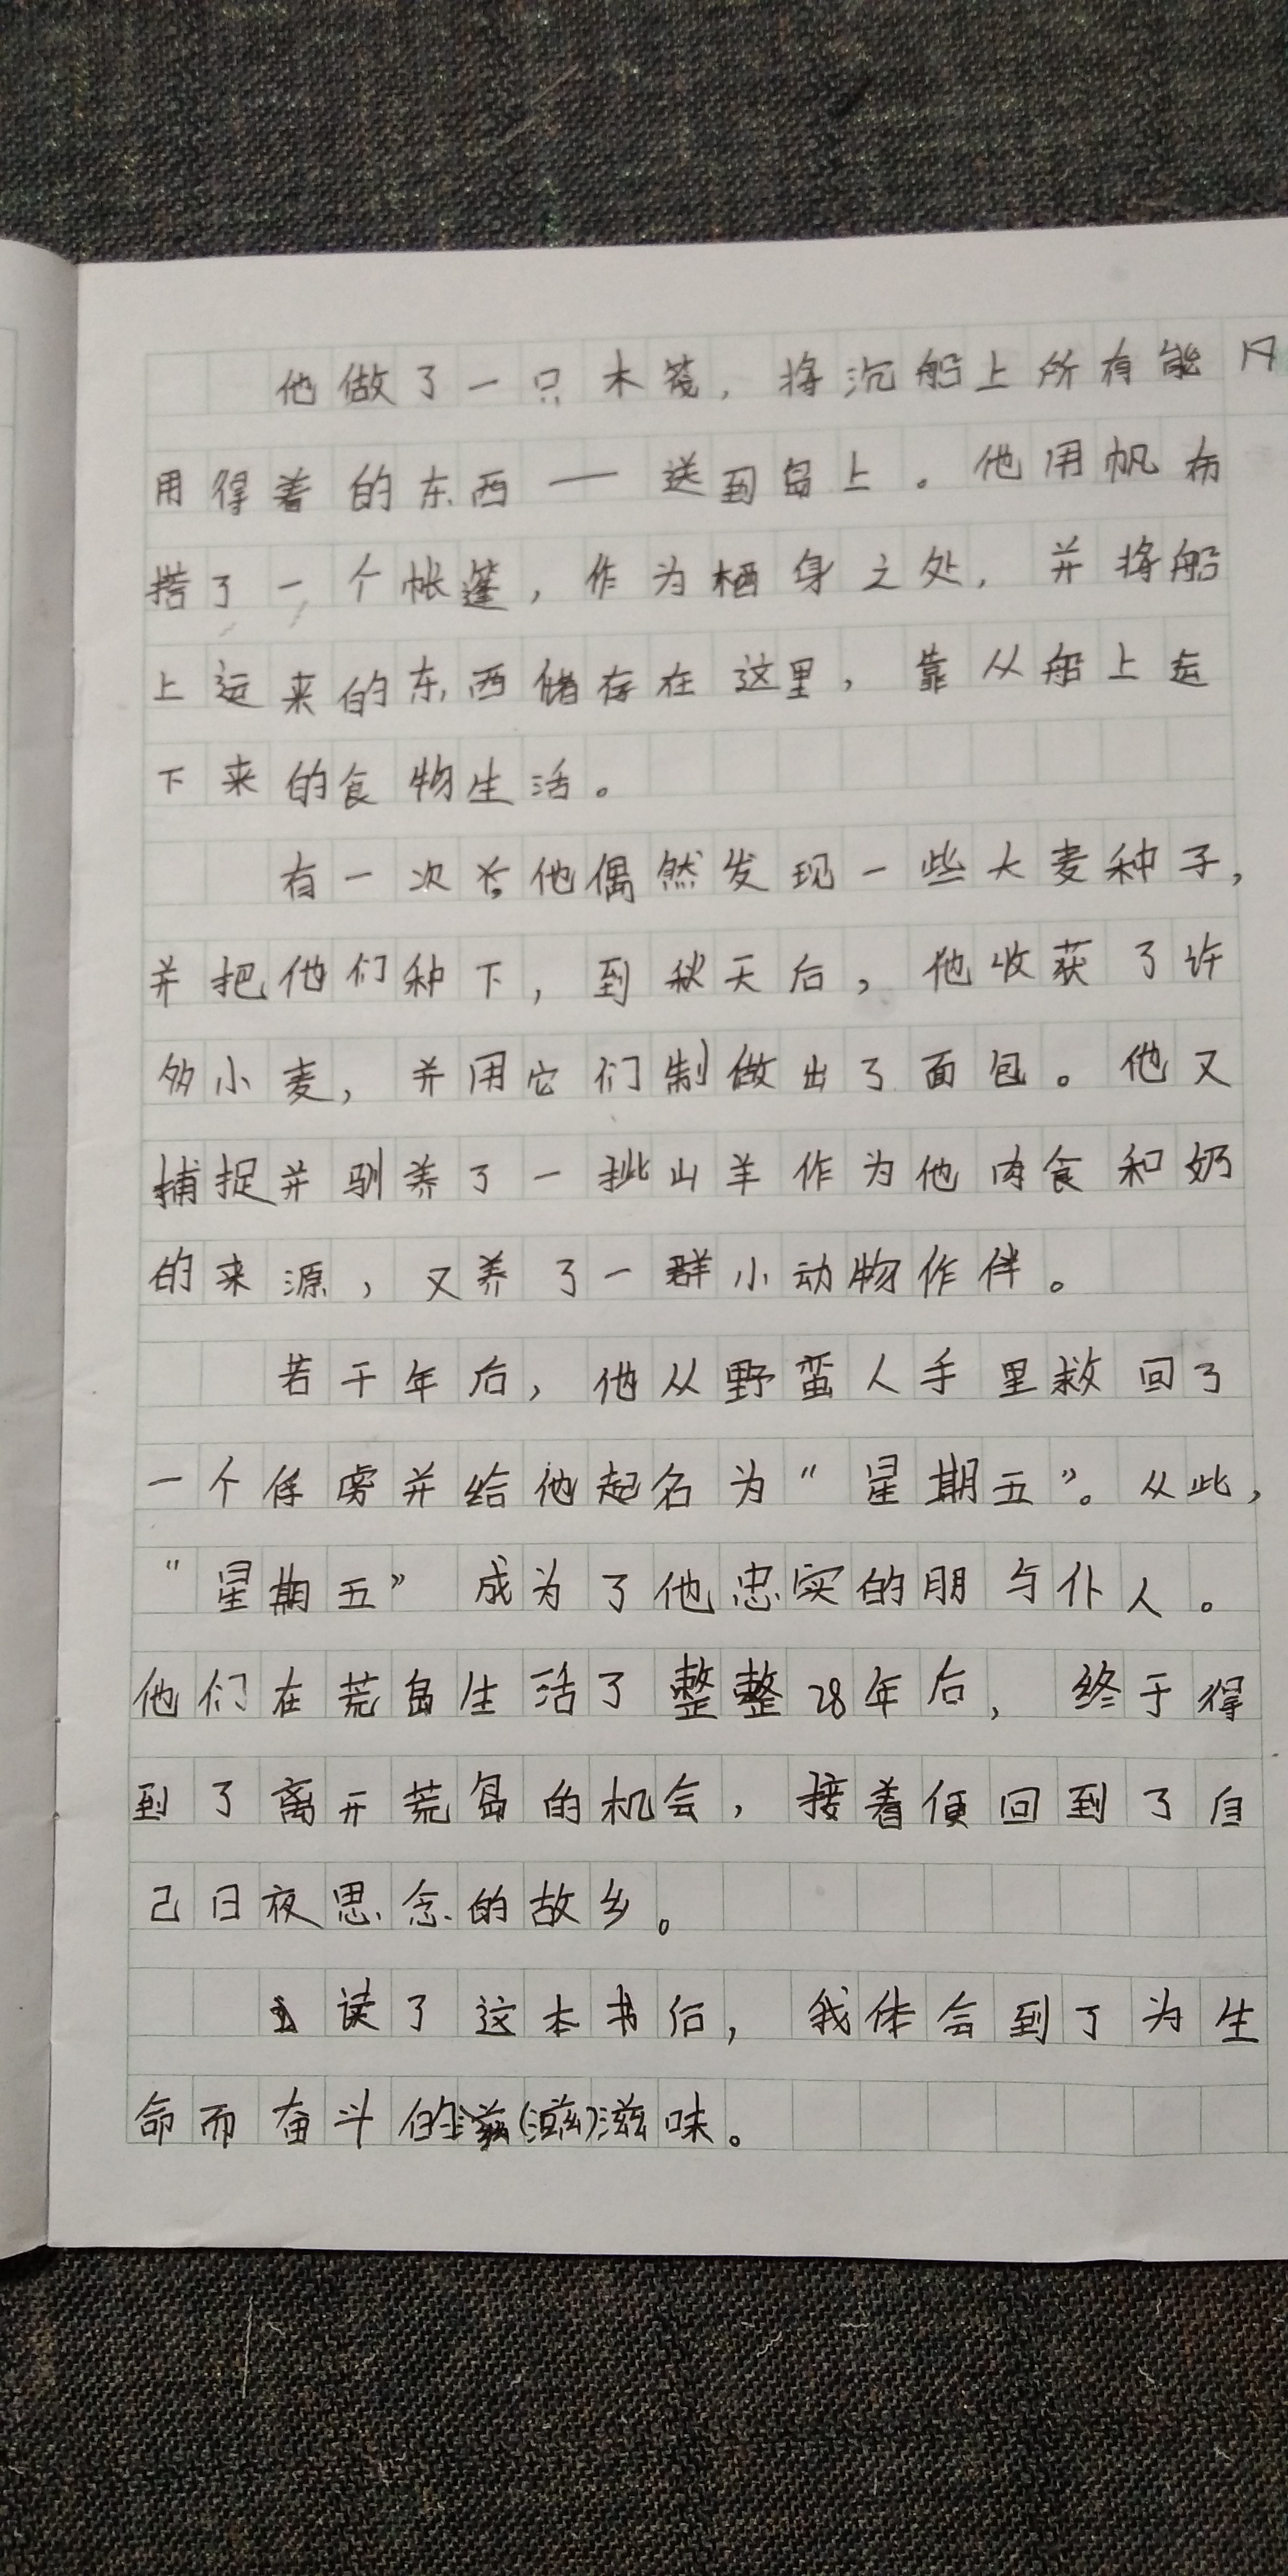 他做了一只木筏，将沉船上所有能
用得着的东西一一送到岛上。他用帆布
搭了一个帐篷，作为栖身之处，并将船
上运来的东西储存在这里，靠从船上运
下来的食物生活。
有一次他偶然发现一些大麦种子，
并把他们种下，到秋天后，他收获了许
多小麦，并用它们制做出了面包。他又
捕捉并驯养了一批山羊作为他肉食和奶
的来源，又养了一群小动物作伴。
若干年后，他从野蛮人手里救回了
一个俘虏并给他起名为“星期五”。从此，
“星期五”成为了他忠实的朋与仆人。
他们在荒岛生活了整整28年后，终于得
到了离开荒岛的机会，接着便回到了自
己日夜思念的故乡。
读了这本书后，我体会到了为生
命而奋斗的(滋)滋味。